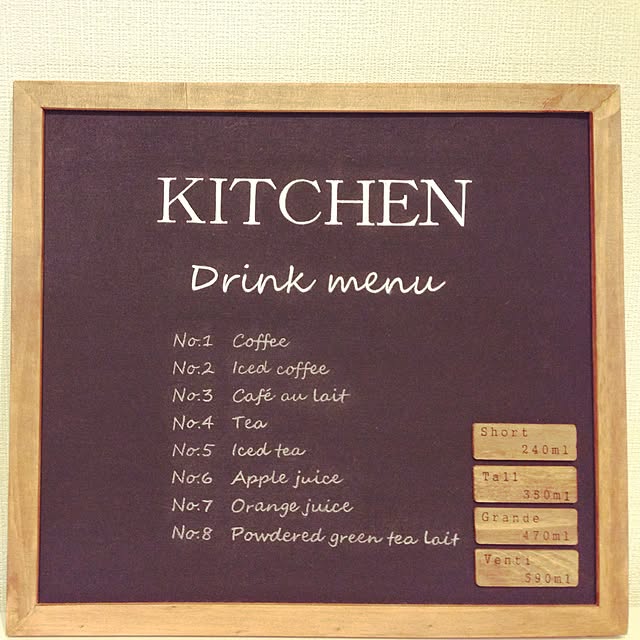 KITCHEN
Drink menu
No.1 Coffee
No.2 Iced coffee
No.3 Café au lait
No.4 Tea
No.5 Iced tea
No.6 Apple juice
No.7 Orange juice
No.8 Powdered green tea lait
Short
240ml
Tall
350ml
Grande
470ml
Venti
590ml